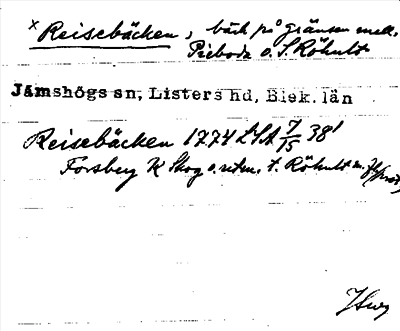 x Reisebäcken, bäck på gränsen mell.
Pieboda o. S. Röhult
Jämshögs sn, Listers hd, Blek. län
Reisebäcken 1774 LSA 7/15 38'
Forsberg K Skog o. utm. t. Röhult m. fl